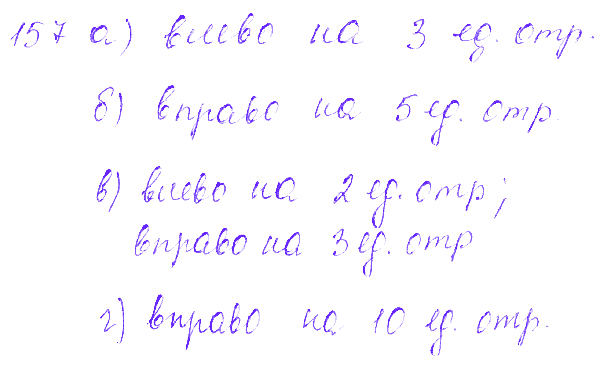 157 а) влево на 3 ед. отр.
б) вправо на 5 ед. отр.
в) влево на 2 ед. отр;
вправо на 3 ед. отр
г) вправо на 10 ед. отр.